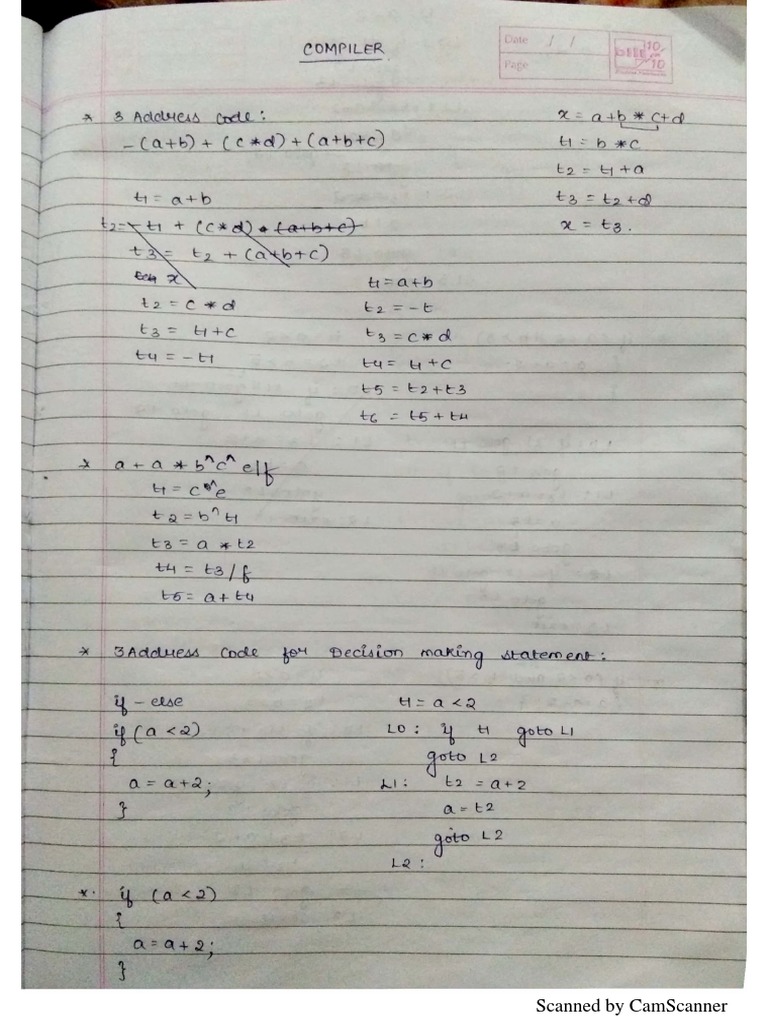 COMPILER
Date / /
Page
10/10
* 3 Address code:
-(a+b) + (c*d) + (a+b+c)
x = a+b * c+d
t1 = b*c
t2 = t1+a
t3 = t2+d
x = t3.
t1 = a+b
t2 = - t1 + (c*d) + (a+b+c)
t3 = t2 + (a+b+c)
x
t2 = c * d
t3 = t1+c
t4 = -t1
t1 = a+b
t2 = -t
t3 = c*d
t4 = t1+c
t5 = t2+t3
t6 = t5+t4
* a + a * b^c^ e/f
t1 = c^e
t2 = b^t1
t3 = a * t2
t4 = t3/f
t5 = a+t4
* 3 Address Code for Decision making statement:
if - else
if (a<2)
{
a = a+2;
}
t1 = a<2
L0: if t1 goto L1
goto L2
L1: t2 = a+2
a = t2
goto L2
L2:
*. if (a<2)
{
a = a+2;
}
Scanned by CamScanner